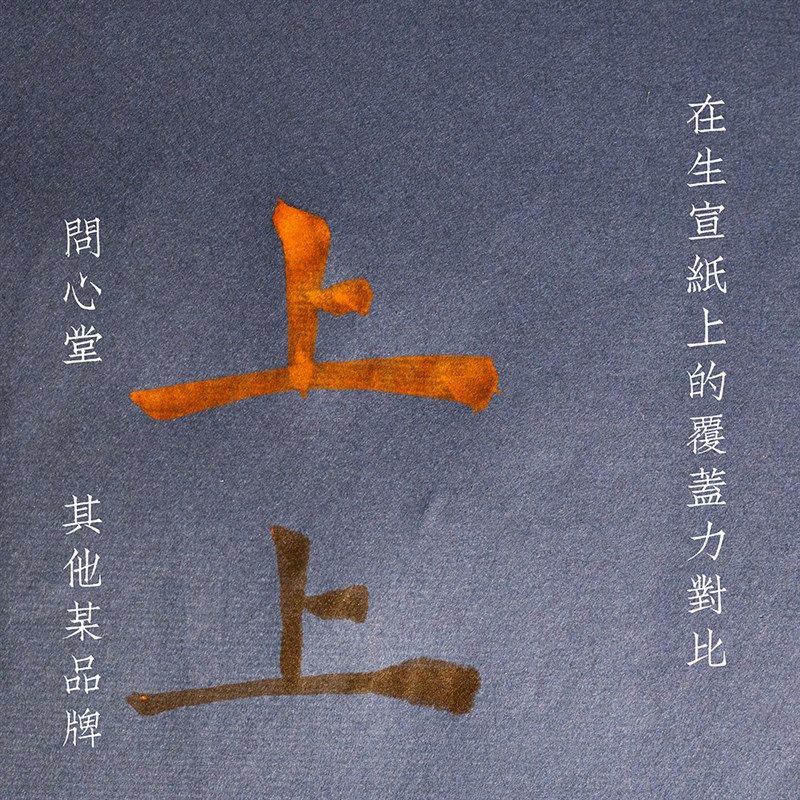 在生宣紙上的覆蓋力對比
問心堂
上
其他某品牌
上